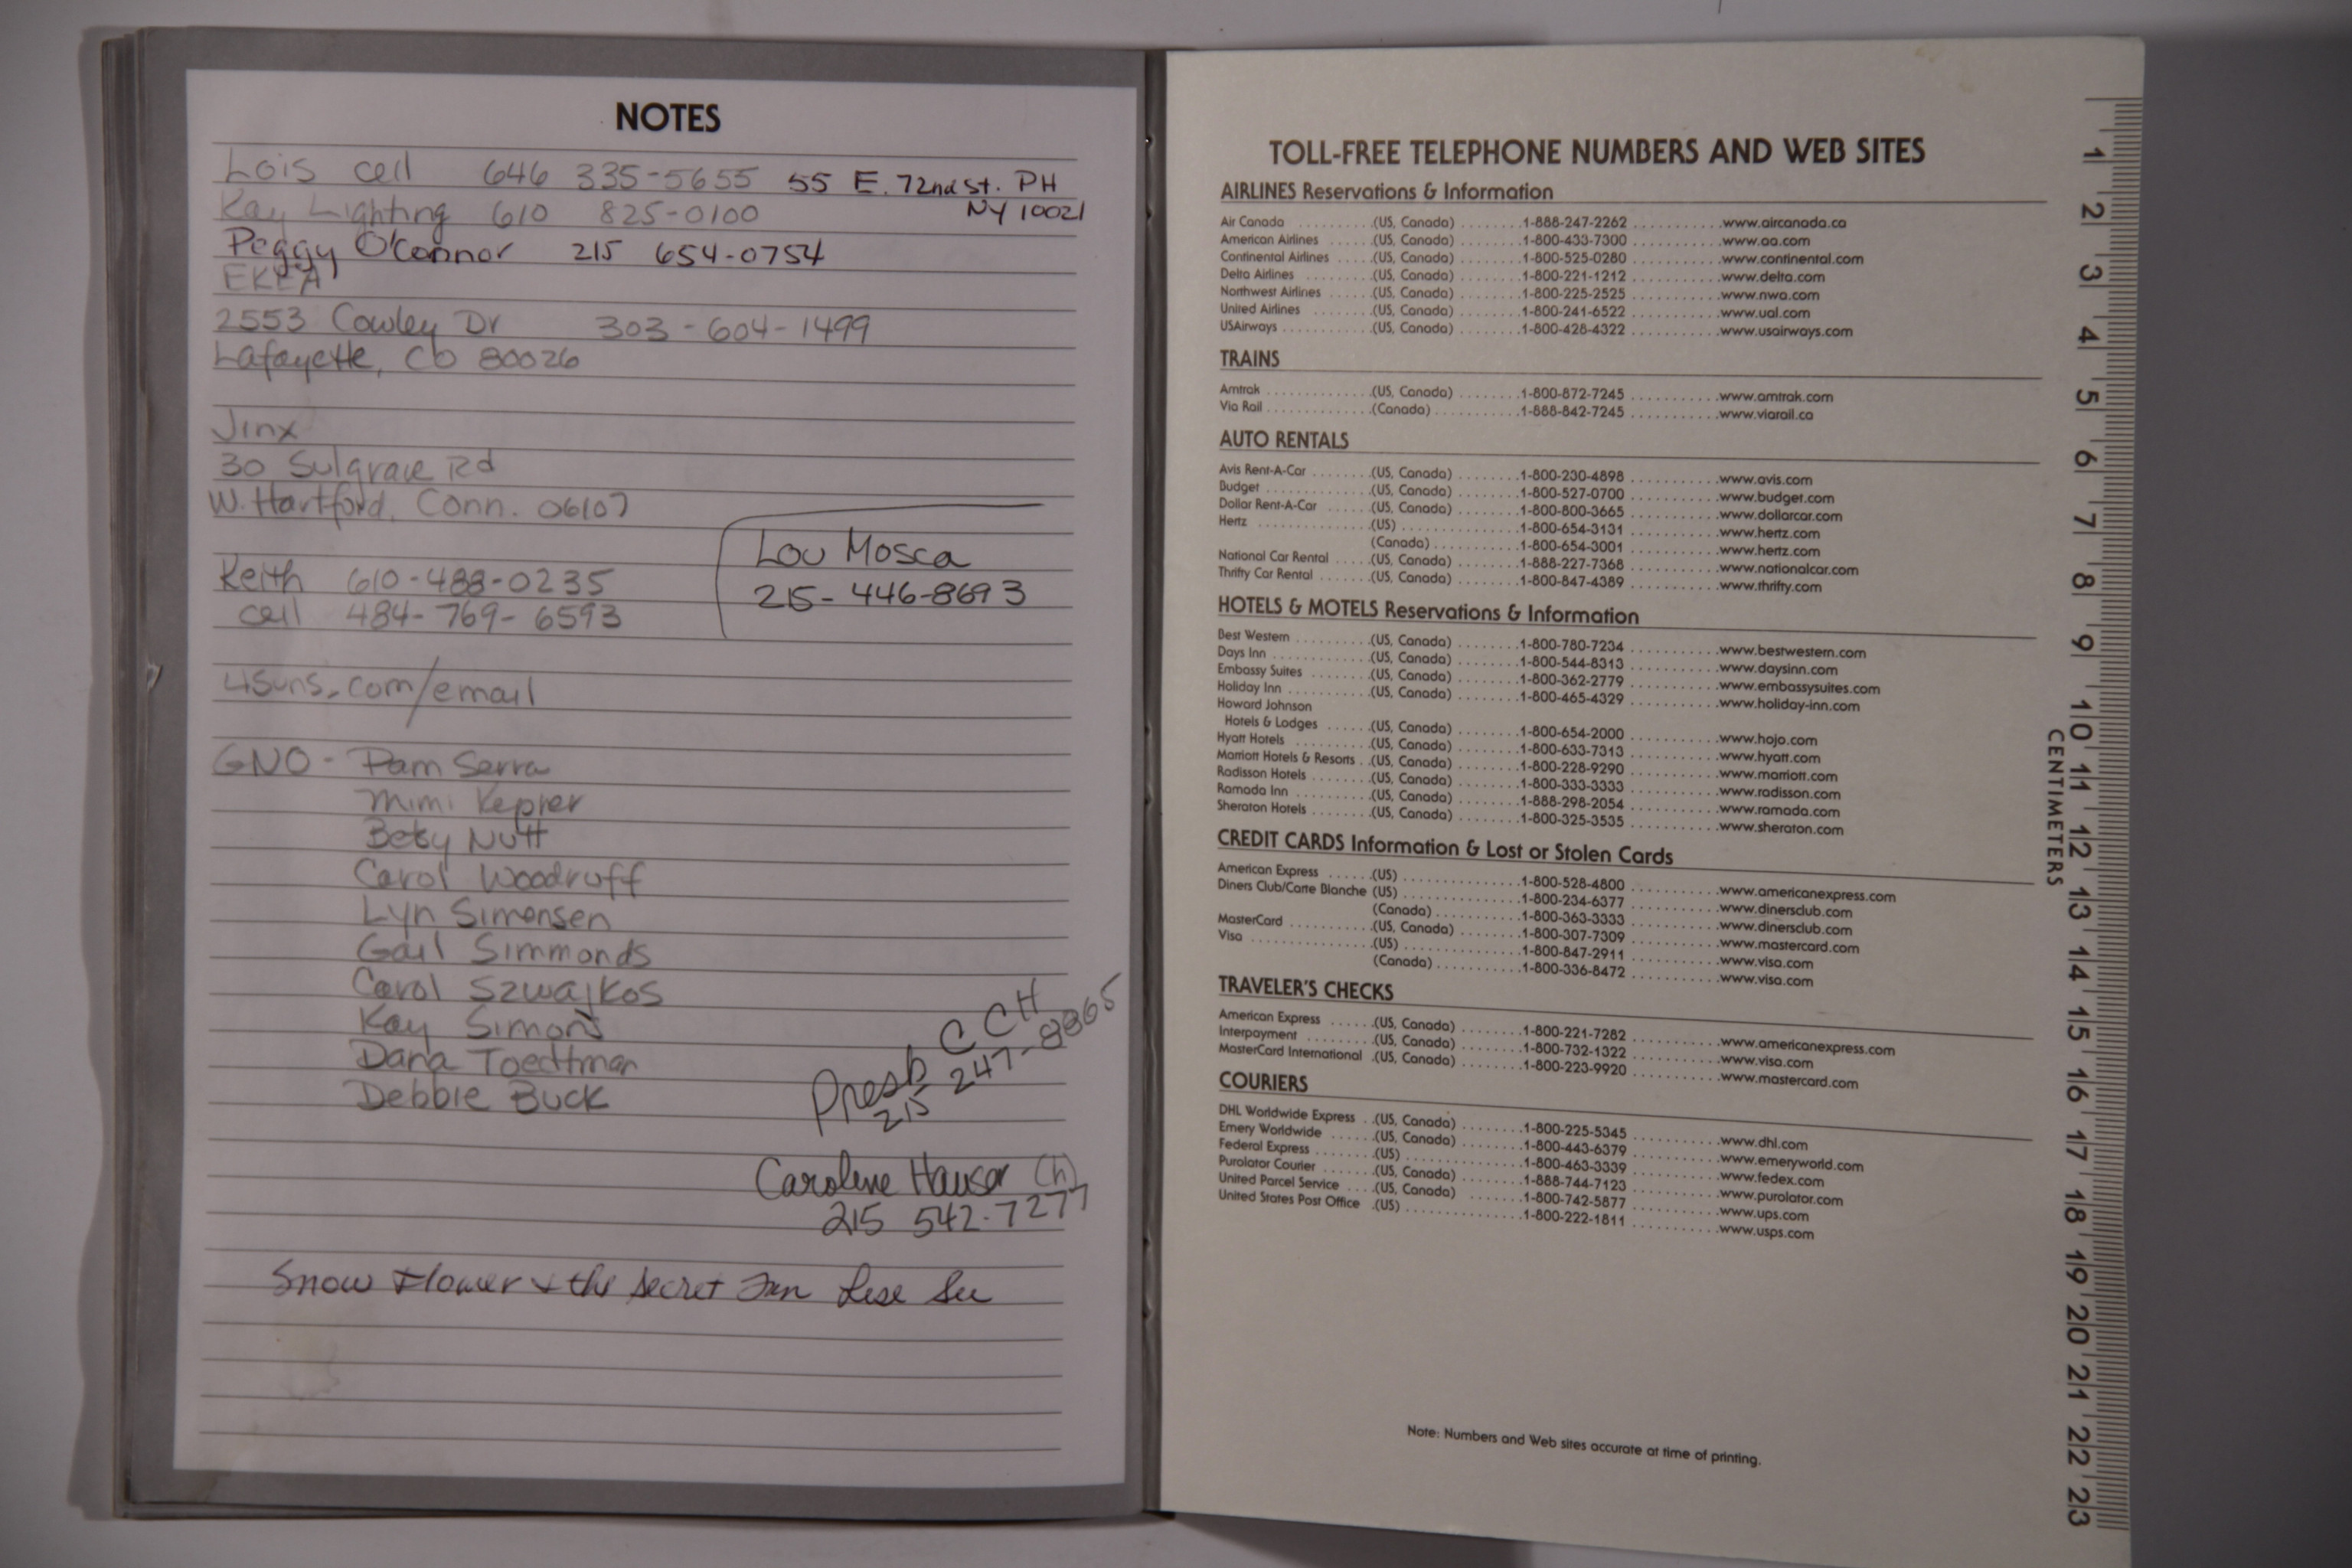 NOTES
Lois cell 646 335-5655 55 E. 72nd St. PH
NY 10021
Kay Lighting 610 825-0100
Peggy O'Connor 215 654-0754
EKEA
2553 Cowley Dr 303-604-1499
Lafayette, CO 80026
Jinx
30 Sulgrave Rd
W. Hartford, Conn. 06107
Lou Mosca
215-446-8693
Keith 610-488-0235
cell 484-769-6593
45uns.com/email
GNO - Pam Serra
Mimi Kepner
Betsy Nutt
Carol Woodruff
Lyn Simonsen
Gail Simmonds
Carol Szwajkos
Kay Simons
Dana Toedtman
Debbie Buck
Presb C C H
215 247-8865
Caroline Hauser (h)
215 542-7277
Snow Flower & the Secret Fan Lise See
TOLL-FREE TELEPHONE NUMBERS AND WEB SITES
AIRLINES Reservations & Information
Air Canada (US, Canada) 1-888-247-2262 www.aircanada.ca
American Airlines (US, Canada) 1-800-433-7300 www.aa.com
Continental Airlines (US, Canada) 1-800-525-0280 www.continental.com
Delta Airlines (US, Canada) 1-800-221-1212 www.delta.com
Northwest Airlines (US, Canada) 1-800-225-2525 www.nwa.com
United Airlines (US, Canada) 1-800-241-6522 www.ual.com
USAirways (US, Canada) 1-800-428-4322 www.usairways.com
TRAINS
Amtrak (US, Canada) 1-800-872-7245 www.amtrak.com
Via Rail (Canada) 1-888-842-7245 www.viarail.ca
AUTO RENTALS
Avis Rent-A-Car (US, Canada) 1-800-230-4898 www.avis.com
Budget (US, Canada) 1-800-527-0700 www.budget.com
Dollar Rent-A-Car (US, Canada) 1-800-800-3665 www.dollarcar.com
Hertz (US) 1-800-654-3131 www.hertz.com
(Canada) 1-800-654-3001 www.hertz.com
National Car Rental (US, Canada) 1-888-227-7368 www.nationalcar.com
Thrifty Car Rental (US, Canada) 1-800-847-4389 www.thrifty.com
HOTELS & MOTELS Reservations & Information
Best Western (US, Canada) 1-800-780-7234 www.bestwestern.com
Days Inn (US, Canada) 1-800-544-8313 www.daysinn.com
Embassy Suites (US, Canada) 1-800-362-2779 www.embassysuites.com
Holiday Inn (US, Canada) 1-800-465-4329 www.holiday-inn.com
Howard Johnson
Hotels & Lodges (US, Canada) 1-800-654-2000 www.hojo.com
Hyatt Hotels (US, Canada) 1-800-633-7313 www.hyatt.com
Marriott Hotels & Resorts (US, Canada) 1-800-228-9290 www.marriott.com
Radisson Hotels (US, Canada) 1-800-333-3333 www.radisson.com
Ramada Inn (US, Canada) 1-888-298-2054 www.ramada.com
Sheraton Hotels (US, Canada) 1-800-325-3535 www.sheraton.com
CREDIT CARDS Information & Lost or Stolen Cards
American Express (US) 1-800-528-4800 www.americanexpress.com
Diners Club/Carte Blanche (US) 1-800-234-6377 www.dinersclub.com
(Canada) 1-800-363-3333 www.dinersclub.com
MasterCard (US, Canada) 1-800-307-7309 www.mastercard.com
Visa (US) 1-800-847-2911 www.visa.com
(Canada) 1-800-336-8472 www.visa.com
TRAVELER'S CHECKS
American Express (US, Canada) 1-800-221-7282 www.americanexpress.com
Interpayment (US, Canada) 1-800-732-1322 www.visa.com
MasterCard International (US, Canada) 1-800-223-9920 www.mastercard.com
COURIERS
DHL Worldwide Express (US, Canada) 1-800-225-5345 www.dhl.com
Emery Worldwide (US, Canada) 1-800-443-6379 www.emeryworld.com
Federal Express (US) 1-800-463-3339 www.fedex.com
Purolator Courier (US, Canada) 1-888-744-7123 www.purolator.com
United Parcel Service (US, Canada) 1-800-742-5877 www.ups.com
United States Post Office (US) 1-800-222-1811 www.usps.com
Note: Numbers and Web sites accurate at time of printing.
1 2 3 4 5 6 7 8 9 10 11 12 13 14 15 16 17 18 19 20 21 22 23
CENTIMETERS